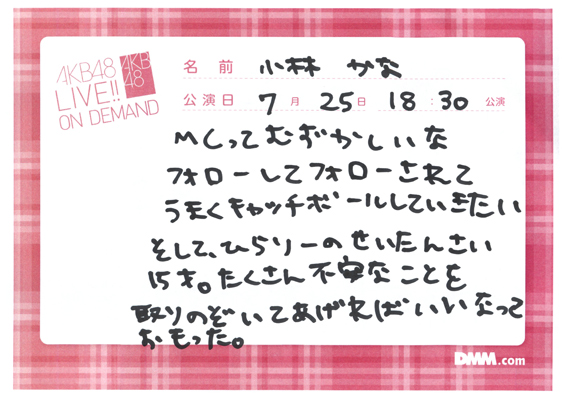 AKB48
LIVE!!
ON DEMAND
AKB
48
名前 小林 かな
公演日 7月 25日 18:30 公演
MCってむずかしいな
フォローしてフォローされて
うまくキャッチボールしていきたい
そして、ひらりーのせいたんさい
15才。たくさん不安なことを
取りのぞいてあげればいいなって
おもった。
DMM.com